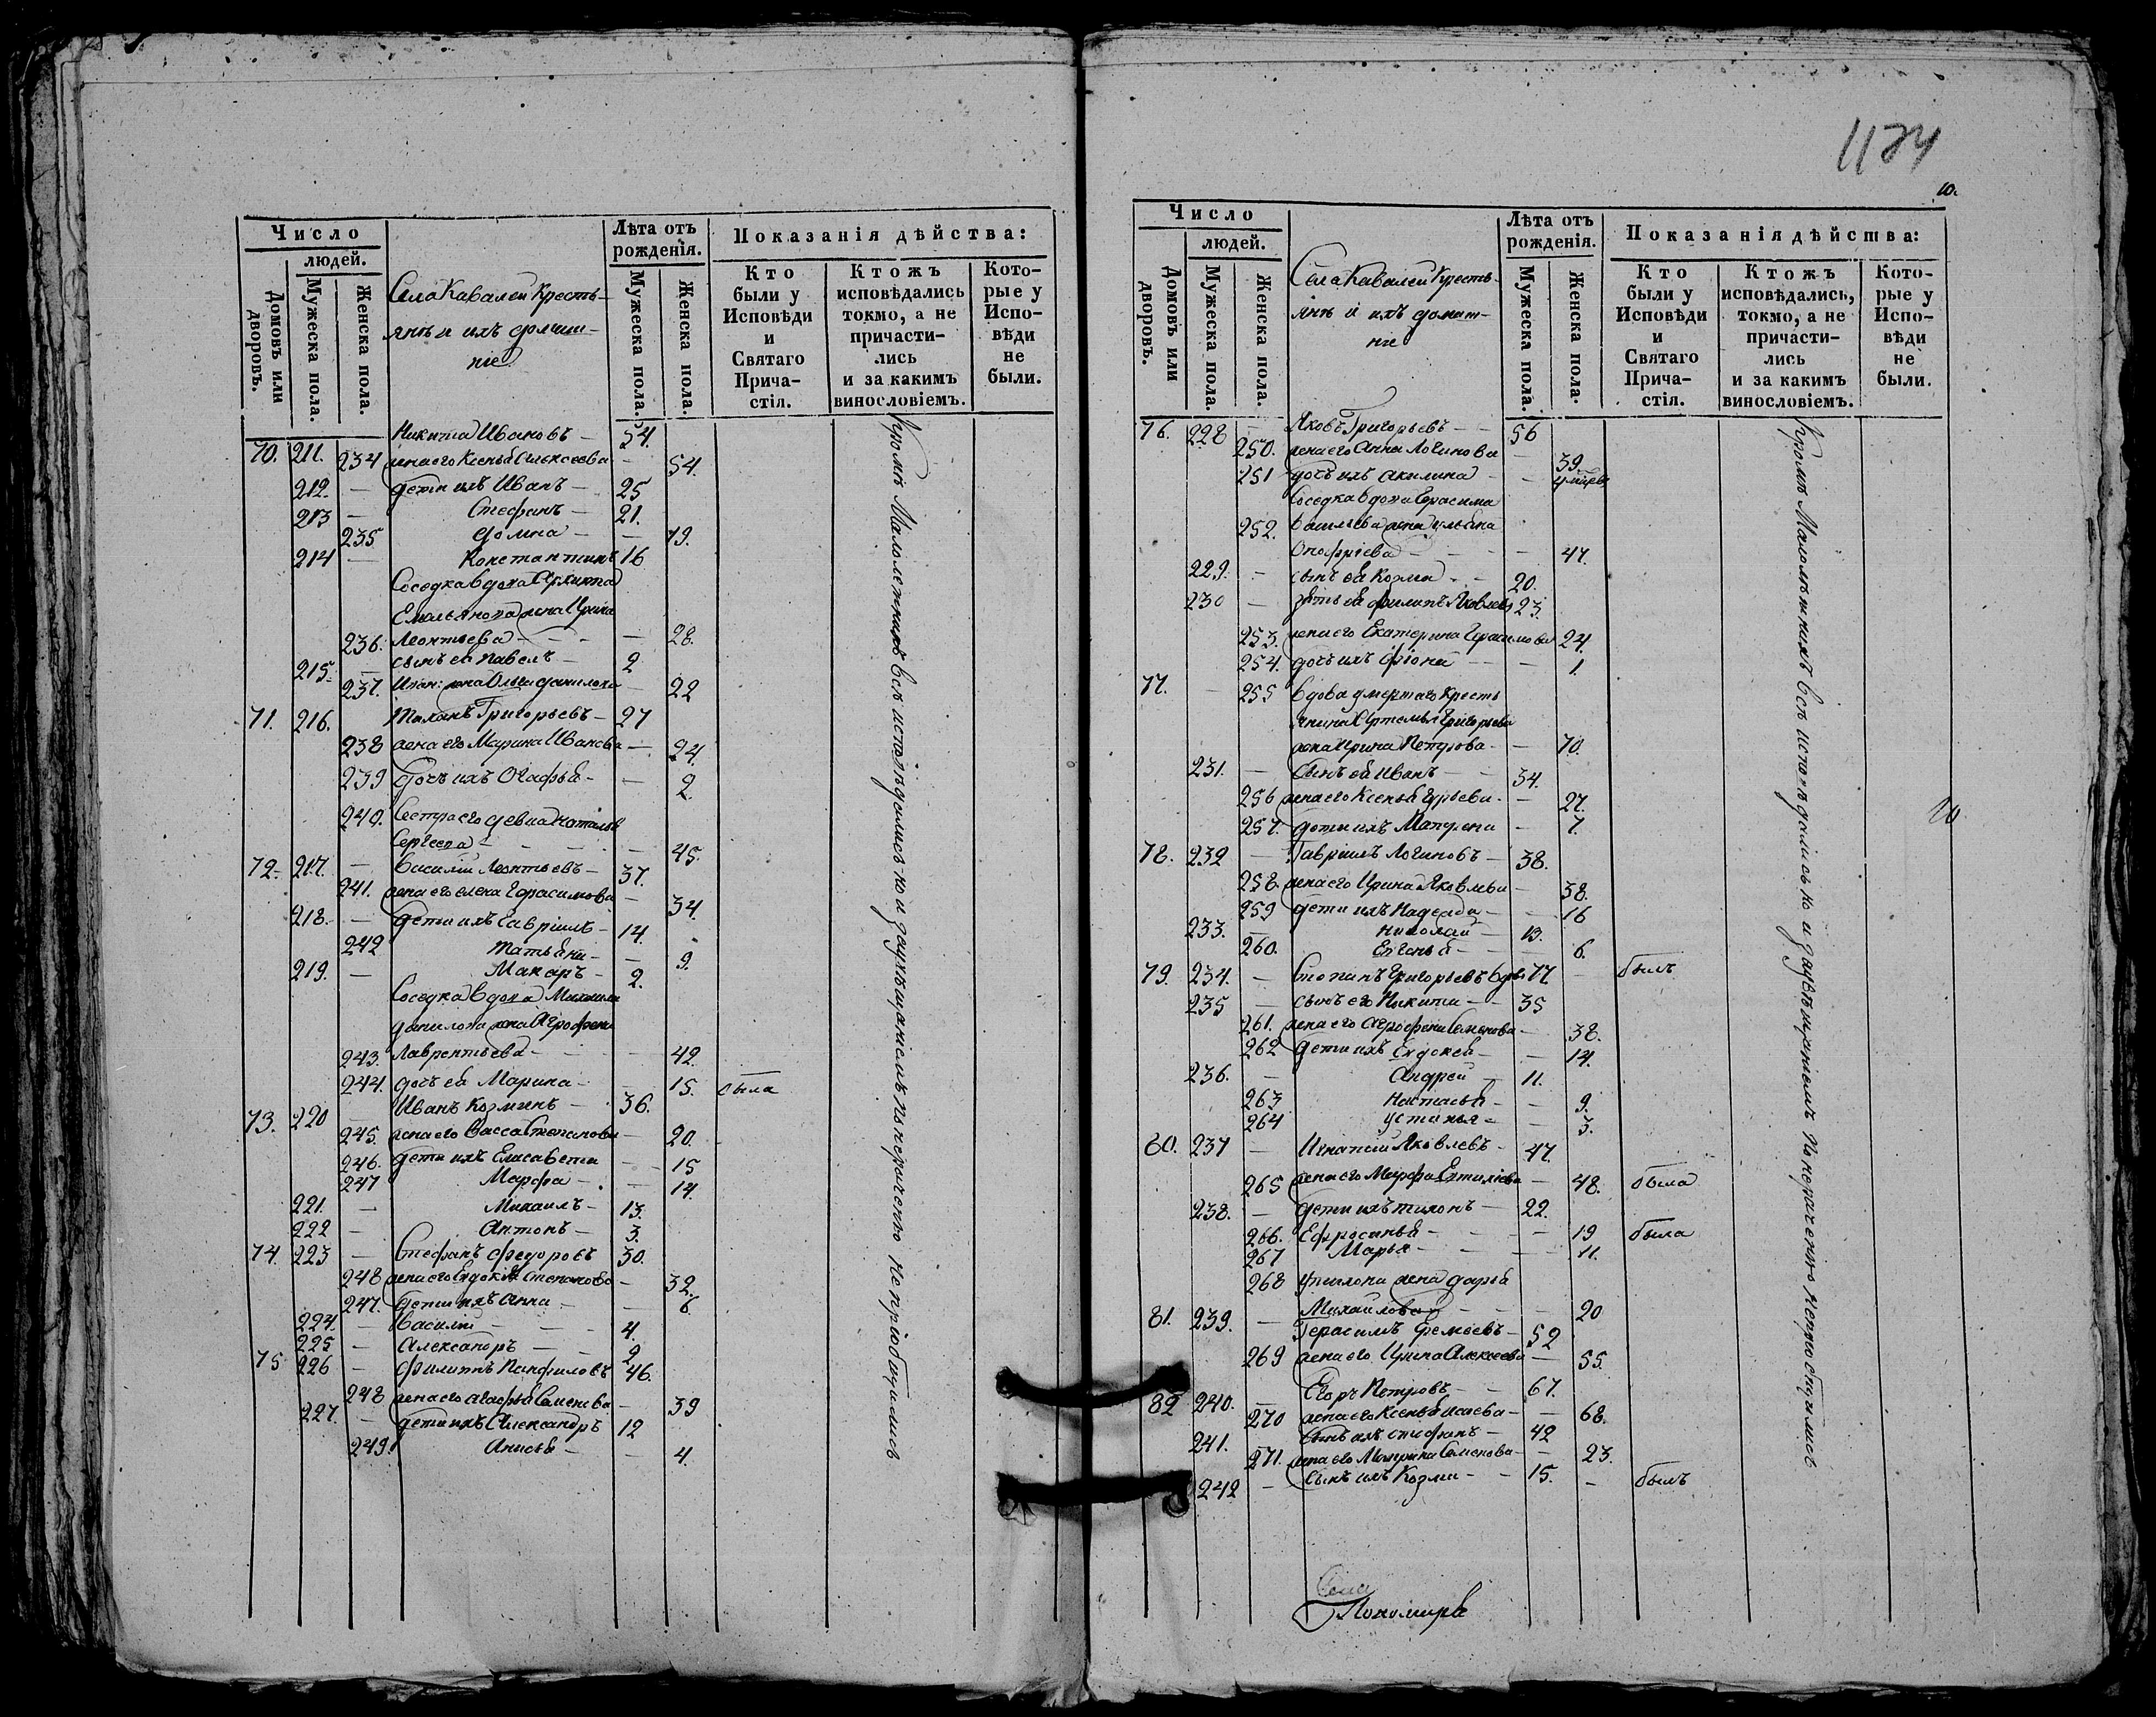 Число
людей.
Домовъ или дворовъ.
Мужеска пола.
Женска пола.
Села Кавалеи Кресть-
янъ и ихъ домаш-
ніе
Лѣта отъ рожденія.
Мужеска пола.
Женска пола.
Показанія дѣйства:
Кто были у Исповѣди и Святаго Прича-стія.
Ктожъ исповѣдались токмо, а не причасти-лись и за какимъ винословіемъ.
Кото-рые у Испо-вѣди не были.
70. 211. Никита Ивановъ – 54.
234 жена его Ксенья Алексеева – 54.
212. – дети ихъ Иванъ – 25
213 – Стефанъ – 21.
235 Домна – – 19.
214 – Константинъ 16
Соседка вдова Архипа
Емельянова жена Ирина
236. Леонтьева – – 28.
215. – сынъ ея Павелъ – 2
237. Иван: жена Ольга Данилова – 22
71. 216. Григорьевъ – 27
238 жена его Марина Иванова – 24.
239 дочь ихъ Огафья – – 2.
240. Сестра его девка Наталья
Сергеева – – 45.
72. 217. – Василій Леонтьевъ – 37.
241. жена его Елена Герасимова – 34.
218. – дети ихъ Гавріилъ – 14.
242 Татьяна – – 9.
219. – Макаръ – 2.
Соседка вдова Михаила
Данилова жена Агрофена
243. Лаврентьева – – 42.
244. дочь ея Марина – 15. была
73. 220 – Иванъ Козминъ – 36.
245. жена его Васса Степанова – 20.
246. дети ихъ Елисавета – 15
247 Марфа – – 14.
221. – Михаилъ – 13.
222 – Антонъ – 3.
74. 223 – Стефанъ Федоровъ 30.
248 жена его Евдокея Степанова – 32.
247. дети ихъ Анна – – 6
224. – Василій – – 4.
225 – Александръ – – 2
75 226 – Филиппъ Панфиловъ 46.
248 жена его Агафья Семенова – 39
227. – дети ихъ Александръ 12
249. Анисья – – 4.
Кромѣ Малолетнихъ всѣ исповѣдались но и за увѣщаніемъ по нераченію не пріобщились
1124
10.
Число
людей.
Домовъ или дворовъ.
Мужеска пола.
Женска пола.
Села Кавалеи Кресть-
янъ и ихъ домаш-
ніе
Лѣта отъ рожденія.
Мужеска пола.
Женска пола.
Показанія дѣйства:
Кто были у Исповѣди и Святаго Прича-стія.
Ктожъ исповѣдались, токмо, а не причасти-лись и за какимъ винословіемъ.
Кото-рые у Испо-вѣди не были.
76. 228 – Яковъ Григорьевъ – – 56
250. жена его Анна Логинова – 39
251 дочь ихъ Акилина – –
Соседка вдова Герасима
252. Васильева жена Ульяна
Онофріева – – – 47.
229. – сынъ ея Козма – – 20.
230 – зять ея Филипъ Яковлевъ 23.
253. жена его Екатерина Герасимова 24.
254. дочь ихъ Фіона – – – 1.
77. – 255 вдова умершаго Кресть
янина Артемья Григорьева
жена Ирина Петрова – – 70.
231. – Сынъ ея Иванъ – – 34.
256 жена его Ксенья Гурьева – – 27.
257. дети ихъ Матрена – 7.
78. 232 – Гавріилъ Логиновъ – 38.
258. жена его Ирина Яковлева – 38.
259 дети ихъ Надежда – – 16
233. – Николай – 13.
260. Евгенья – – 6.
79. 234. – Степанъ Григорьевъ вдовъ 77. – былъ
235 – сынъ его Никита – – 35
261. жена его Агрофена Семенова – 38.
262 дети ихъ Евдокея – – 14.
236. – Андрей – 11.
263 Настасья – – 9.
264 Устинья – – 3.
80. 237 – Игнатій Яковлевъ – 47.
265 жена его Марфа – 48. была
238. – дети ихъ Тихонъ – 22.
266. Ефросинья – – 19 была
267 Марья – – 11.
268 жена Дарья
Михайлова – – 20
81. 239. – Герасимъ Еремеевъ – 52
269 жена его Ирина Алексеева – 55.
82 240. – Егоръ Петровъ – – 67.
270 жена его Ксенья Исаева – – 68.
241. сынъ ихъ Стефанъ – 42
271. жена его Матрена Семенова – – 23.
242 – сынъ ихъ Козма – – 15. – былъ
Кромѣ Малолѣтнихъ всѣ исповѣдались но и за увѣщаніемъ по нераченію не пріобщились
10
Села
Пономарь